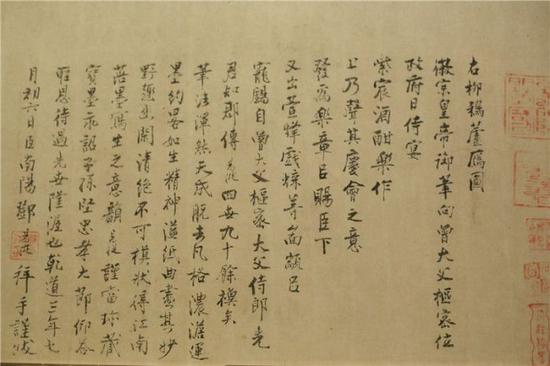 右柳鵶蘆雁圖
徽宗皇帝御筆向曾大父樞密位
政府日侍宴
紫宸酒酣樂作
上乃聲其慶會之意
發為樂章臣賜臣下
又出萱蜂戲等面顧臣
寵錫自曾大父樞密大父侍郎先
君知郡傳四世九十餘襈矣
筆法渾然天成脫去凡格濃淡運
墨約略如生精神溢紙曲盡其妙
野趣幽閑清絕不可模狀得江南
落墨寫生之意韻謹當珍藏
寶墨永詔子孫堅忠孝大節仰答
聖恩待遇先世隆渥也乾道三年七
月初六日臣南陽鄧拜手謹跋